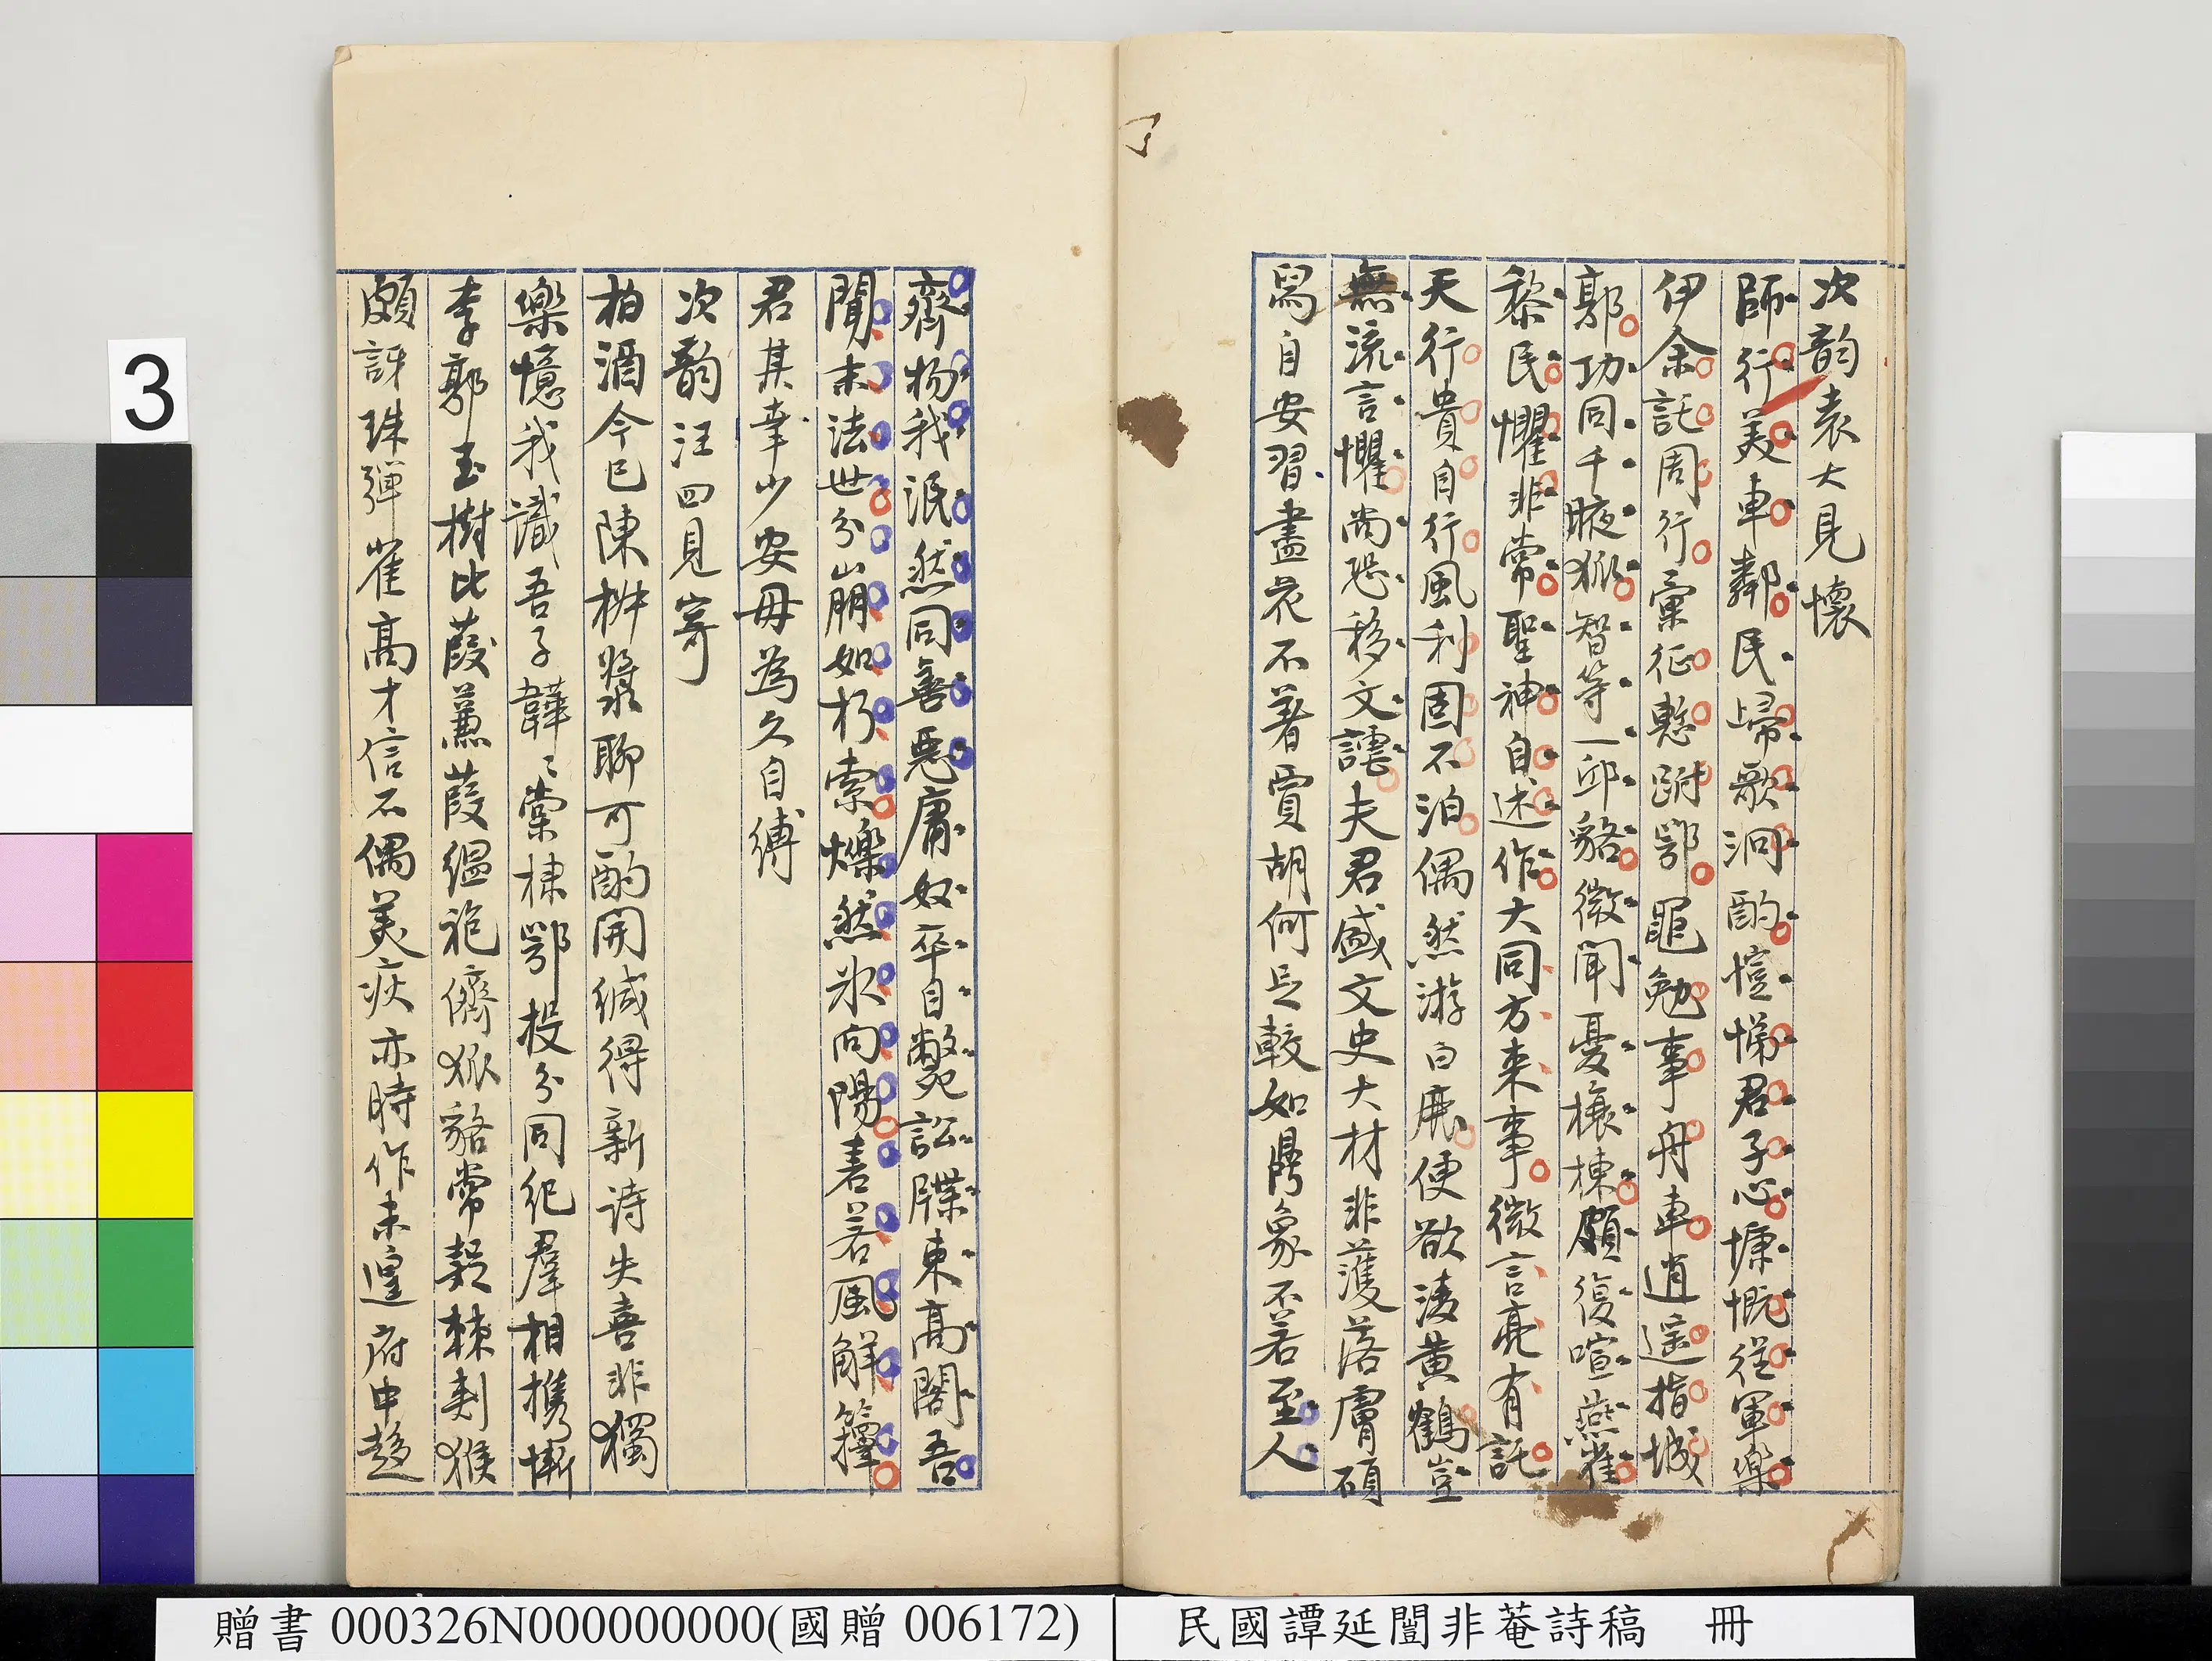 次韵袁大見懷
師行美車鄰民歸歌泂酌愷悌君子心慷慨從軍樂
伊余託周行彙征慙跗鄂黽勉事舟車逍遥指城
郭功同千腋狐智等一邱貉微聞憂榱棟頗復喧燕雀
黎民懼非常聖神自述作大同方来事微言亮有託
天行貴自行風利固不泊偶然游白鹿便欲淩黄鶴豈
無流言懼尚恐移文謔夫君盛文史大材非濩落膚碩
舄自安習盡花不著賈胡何足較如象不若至人
齊物我泯然同善惡庸奴卒自斃訟牒束高閣吾
聞末法世分崩如朽索爍然冰向陽砉若風解籜
君其幸少安毋為久自縛
次韵汪四見寄
柏酒今已陳椒漿聊可酌開緘得新詩失喜非獨
樂憶我識吾子韡〻棠棣鄂投分同紀羣相携慚
李郭玉樹比葭蒹葭縕袍儕狐貉常疑棘刺猴
頗訝珠彈雀高才信不偶美疢亦時作未遑府中趨
3
贈書 000326N000000000(國贈 006172)
民國譚延闓非菴詩稿 冊